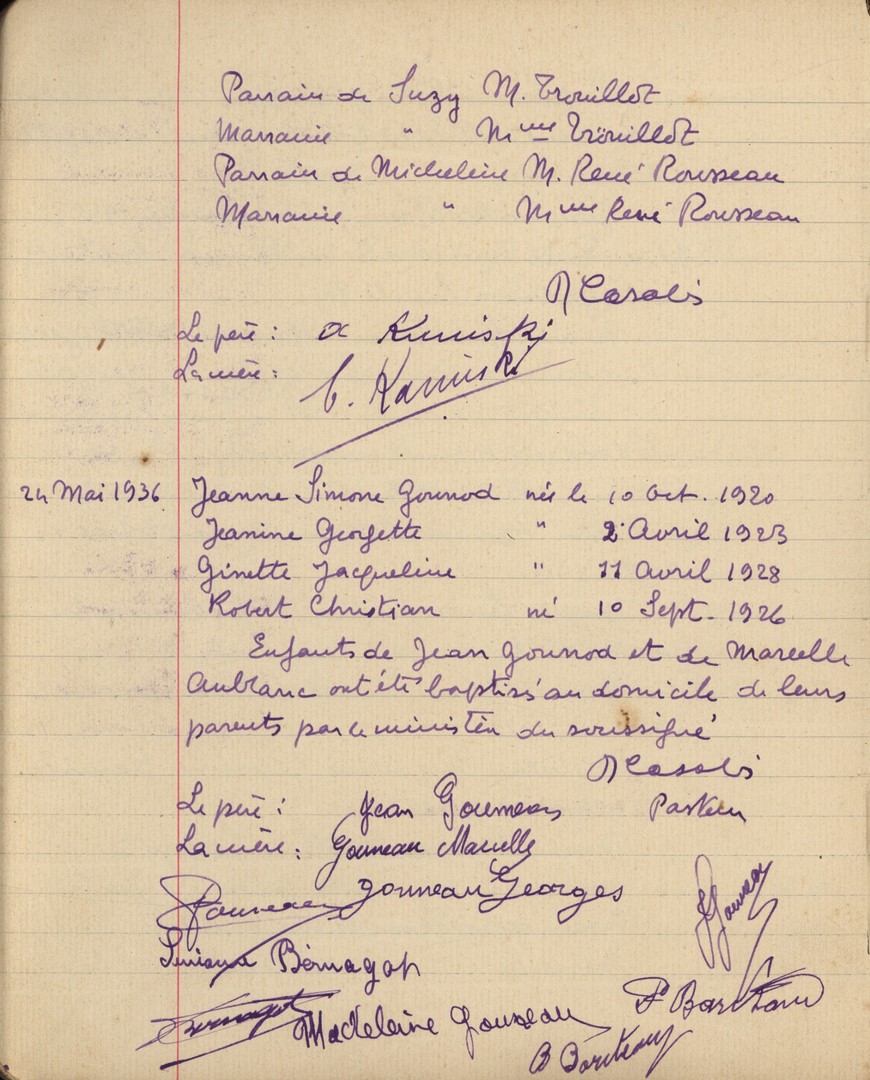 Parrain de Suzy M. Trouillot
Marraine " Mme Trouillot
Parrain de Micheline M. René Rousseau
Marraine " Mme René Rousseau
Casalis
Le père :
La mère :
24 Mai 1936 Jeanne Simone Gounod née le 10 Oct. 1920
Jeanine Georgette " 2 Avril 1923
Ginette Jacqueline " 11 Avril 1928
Robert Christian né 10 Sept. 1926
Enfants de Jean Gounod et de Marcelle
Aublanc ont été baptisés au domicile de leurs
parents par le ministère du soussigné
Casalis
Pasteur
Le père : Jean
La mère : Gouneau Marcelle
Gouneau Georges
Madeleine